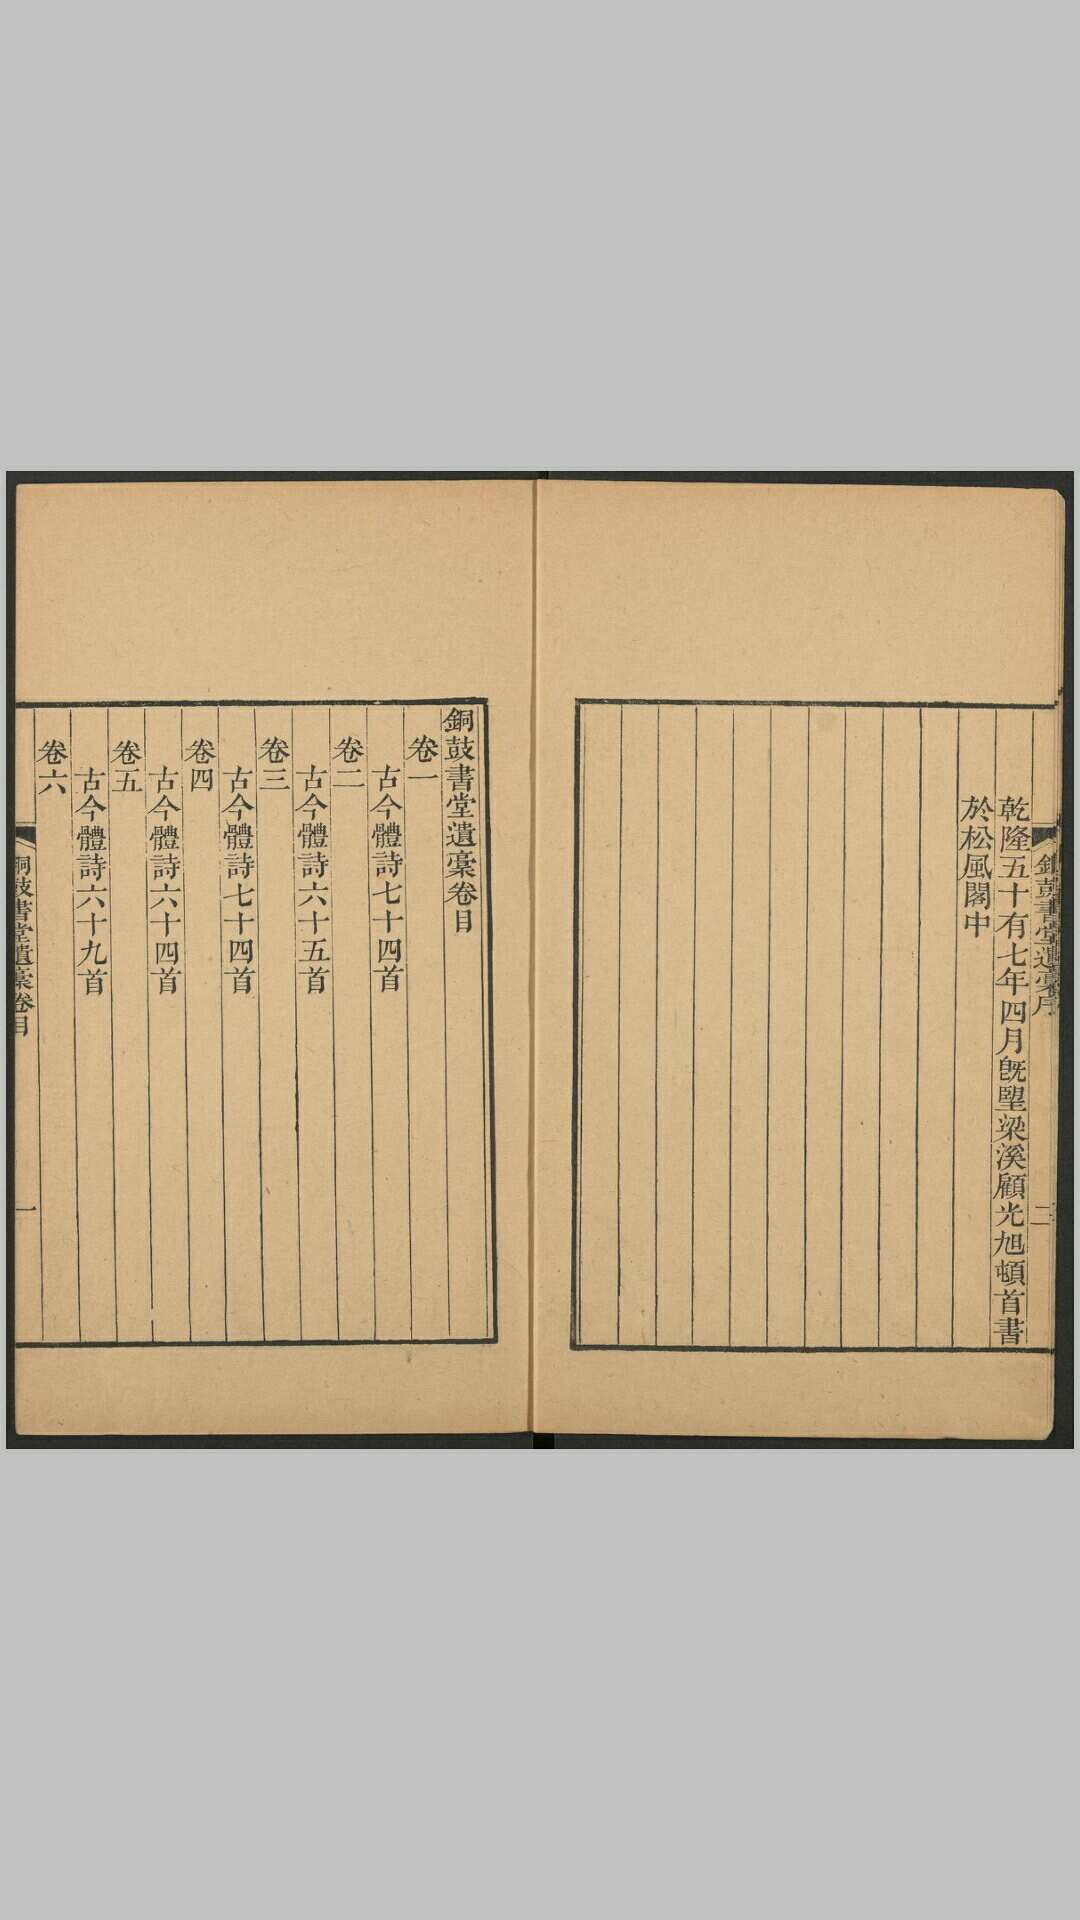 銅鼓書堂遺稾序
二
乾隆五十有七年四月旣朢梁溪顧光旭頓首書
於松風閣中
銅鼓書堂遺稾卷目
卷一
古今體詩七十四首
卷二
古今體詩六十五首
卷三
古今體詩七十四首
卷四
古今體詩六十四首
卷五
古今體詩六十九首
卷六
銅鼓書堂遺稾卷目
一